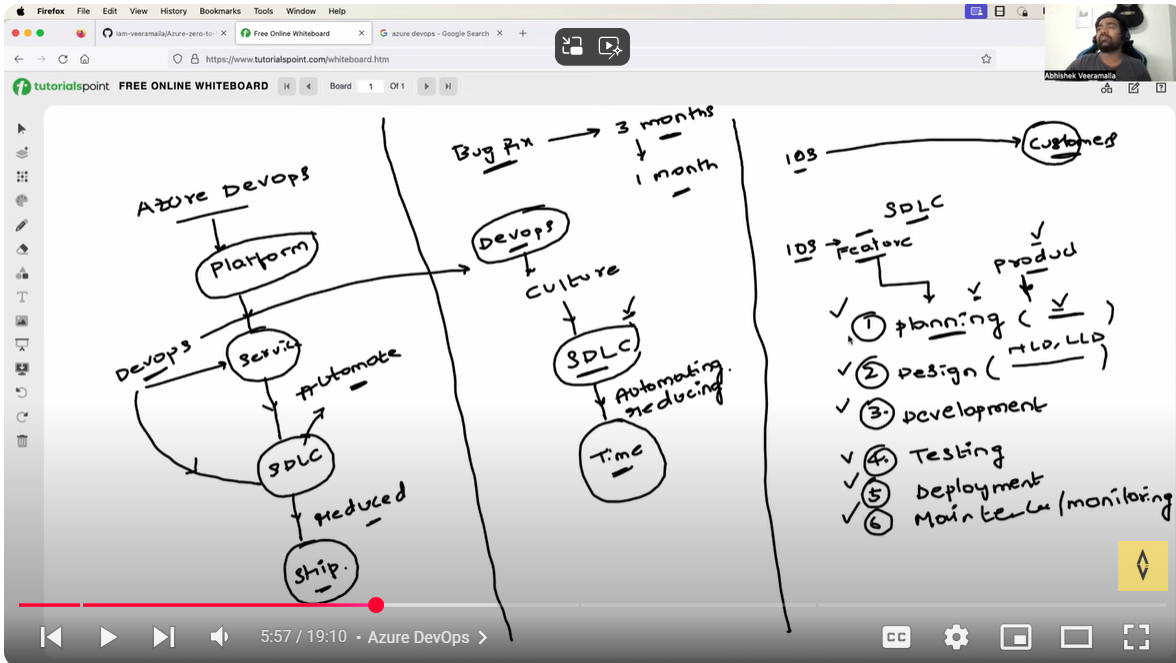 Firefox File Edit View History Bookmarks Tools Window Help
iam-veeramalla/Azure-zero-to-
Free Online Whiteboard
azure devops - Google Search
https://www.tutorialspoint.com/whiteboard.htm
Abhishek Veeramalla
tutorialspoint FREE ONLINE WHITEBOARD Board 1 Of 1
Azure Devops
Platform
Devops
Service
Automate
SDLC
Reduced
Ship.
Bug fix
3 months
1 month
Devops
Culture
SDLC
Automating.
reducing
Time
103
Customers
SDLC
103 Feature
Product
1 Planning ( )
2 Design ( HLD, LLD )
3. Development
4. Testing
5 Deployment
6 Maintence/monitoring
T
5:57 / 19:10 • Azure DevOps
CC